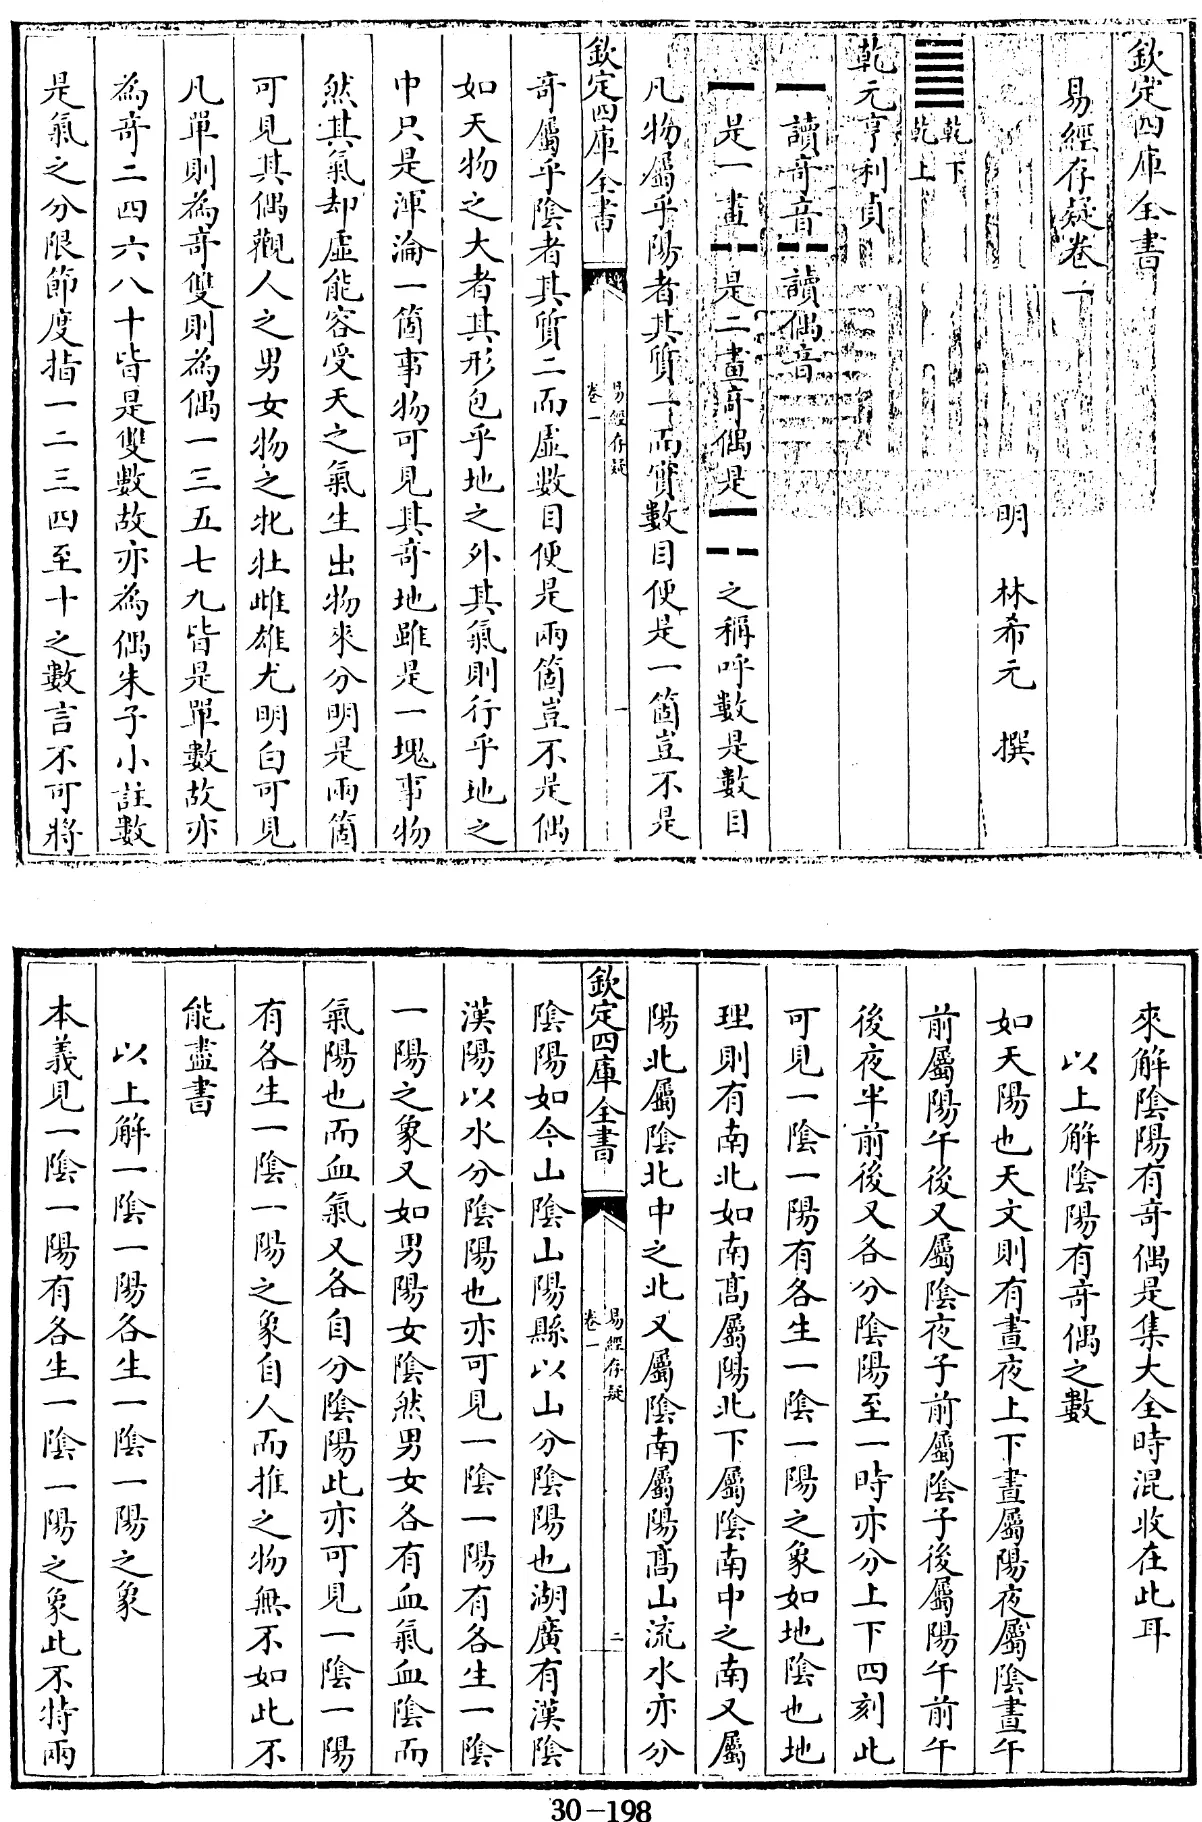 欽定四庫全書
易經存疑卷一
明 林希元 撰
䷀乾下乾上
乾元亨利貞
⚊讀奇音⚋讀偶音
⚊是一畫⚋是二畫奇偶是⚊⚋之稱呼數是數目
凡物屬乎陽者其質一而實數目便是一箇豈不是
欽定四庫全書
易經存疑
卷一
一
奇屬乎陰者其質二而虛數目便是兩箇豈不是偶
如天物之大者其形包乎地之外其氣則行乎地之
中只是渾淪一箇事物可見其奇地雖是一塊事物
然其氣却虛能容受天之氣生出物來分明是兩箇
可見其偶觀人之男女物之牝牡雌雄尤明白可見
凡單則為奇雙則為偶一三五七九皆是單數故亦
為奇二四六八十皆是雙數故亦為偶朱子小註數
是氣之分限節度指一二三四至十之數言不可將
來解陰陽有奇偶是集大全時混收在此耳
以上解陰陽有奇偶之數
如天陽也天文則有晝夜上下晝屬陽夜屬陰晝午
前屬陽午後又屬陰夜子前屬陰子後屬陽午前午
後夜半前後又各分陰陽至一時亦分上下四刻此
可見一陰一陽有各生一陰一陽之象如地陰也地
理則有南北如南髙屬陽北下屬陰南中之南又屬
陽北屬陰北中之北又屬陰南屬陽髙山流水亦分
欽定四庫全書
易經存疑
卷一
二
陰陽如今山陰山陽縣以山分陰陽也湖廣有漢陰
漢陽以水分陰陽也亦可見一陰一陽有各生一陰
一陽之象又如男陽女陰然男女各有血氣血陰而
氣陽也而血氣又各自分陰陽此亦可見一陰一陽
有各生一陰一陽之象自人而推之物無不如此不
能盡書
以上解一陰一陽各生一陰一陽之象
本義見一陰一陽有各生一陰一陽之象此不特兩
30-198